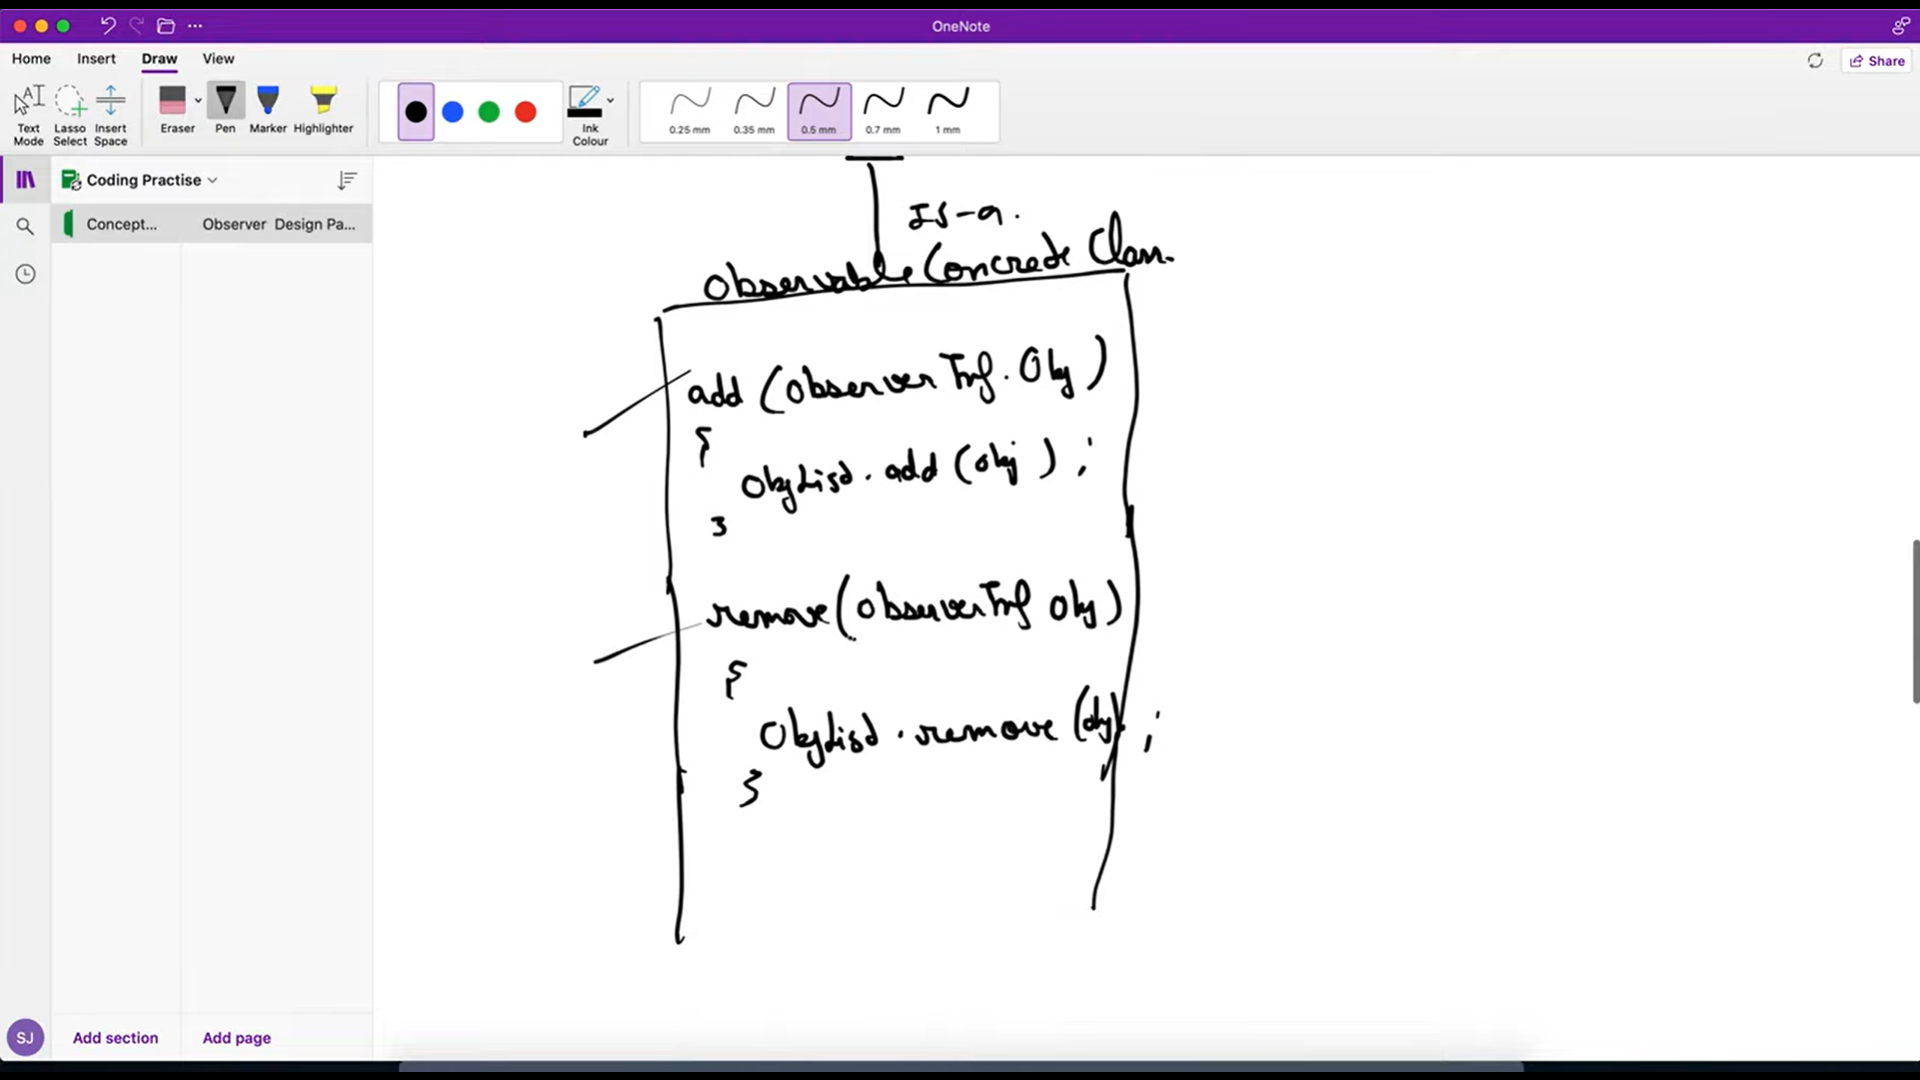 OneNote
Home Insert Draw View
Share
Text Mode
Lasso Select
Insert Space
Eraser
Pen
Marker
Highlighter
Ink Colour
0.25 mm
0.35 mm
0.5 mm
0.7 mm
1 mm
Coding Practise
Concept...
Observer Design Pa...
IS-a.
Observable Concrete Class.
add (Observer Inf. Obj)
{
ObjList.add (obj) ;
}
remove(ObserverInf Obj)
{
ObjList.remove (obj) ;
}
SJ
Add section
Add page